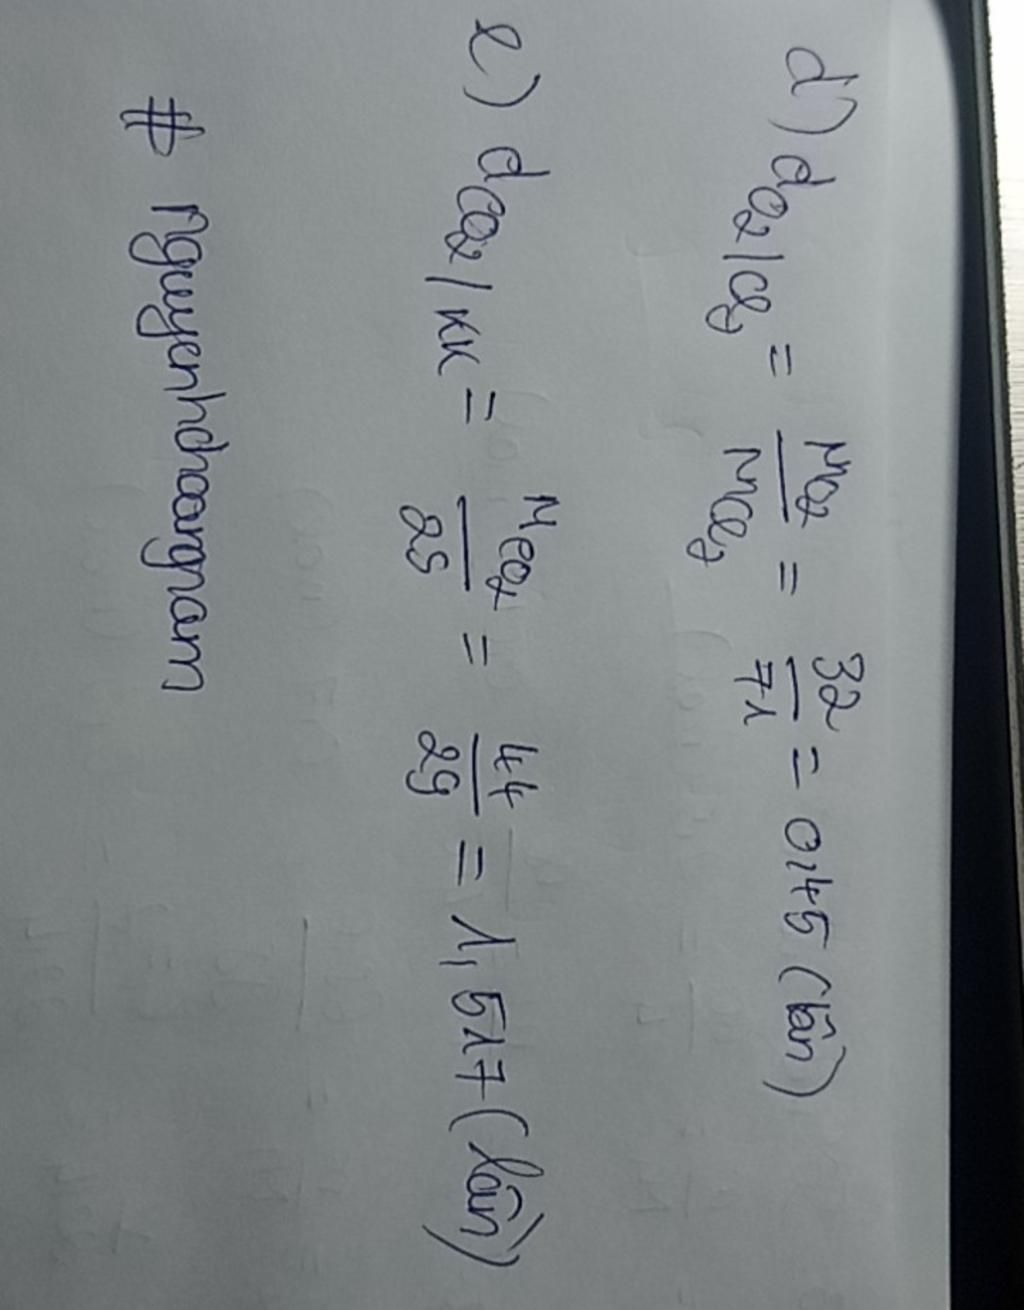 d) d O₂/Cl₂ = M O₂ / M Cl₂ = 32/71 = 0,45 (lần)
e) d CO₂/KK = M CO₂ / 29 = 44/29 = 1,517 (lần)
# nguyenhdoangnam